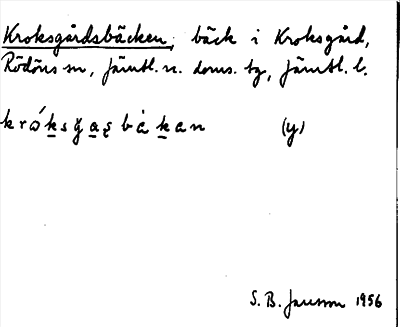 Kroksgårdsbäcken, bäck i Kroksgård,
Rödöns sn, Jämtl. n. doms. tg, Jämtl. l.
(y)
S. B. Jansson 1956